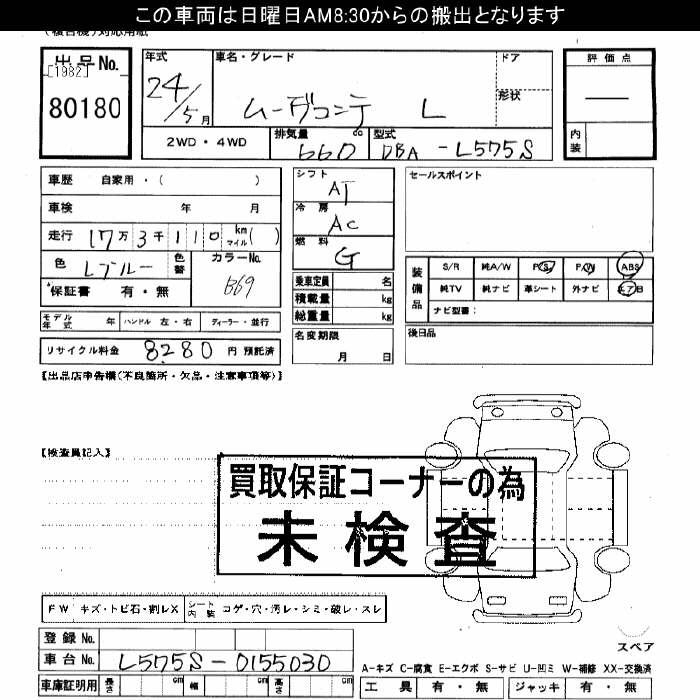 この車両は日曜日AM8:30からの搬出となります
(複合機)対応用紙
出品No.
[1982]
80180
年式 24/5月
車名・グレード ムーヴコンテ L
ドア
形状
評価点
内装
2WD・4WD
排気量 660 cc
型式 DBA-L575S
車歴 自家用・( )
車検 年 月
走行 17万3千110 km マイル( )
色 Lブルー
色替
カラーNo. B69
保証書 有・無
シフト AT
冷房 AC
燃料 G
乗車定員 名
積載量 kg
総重量 kg
名変期限 月 日
セールスポイント
装備品
S/R 純A/W P/S P/W ABS
純TV 純ナビ 革シート 外ナビ エアB
ナビ型番:
後日品
モデル年式 年
ハンドル 左・右
ディーラー・並行
リサイクル料金 8280 円 預託済
【出品店申告欄(不良箇所・欠品・注意事項等)】
【検査員記入】
買取保証コーナーの為
未検査
FW キズ・トビ石・割レX
シート内装 コゲ・穴・汚レ・シミ・破レ・スレ
登録No.
車台No. L575S-0155030
車庫証明用 長さ cm 幅 cm 高さ cm
スペア
A-キズ C-腐食 E-エクボ S-サビ U-凹ミ W-補修 XX-交換済
工具 有・無 ジャッキ 有・無